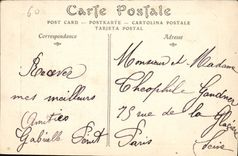 60
Carte Postale
POST CARD - POSTKARTE - CARTOLINA POSTALE
TARJETA POSTAL
Correspondance
Adresse
Recevez
mes meilleurs
Amitiés
Gabrielle
Monsieur et Madame
Théophile
75 rue de la
Paris